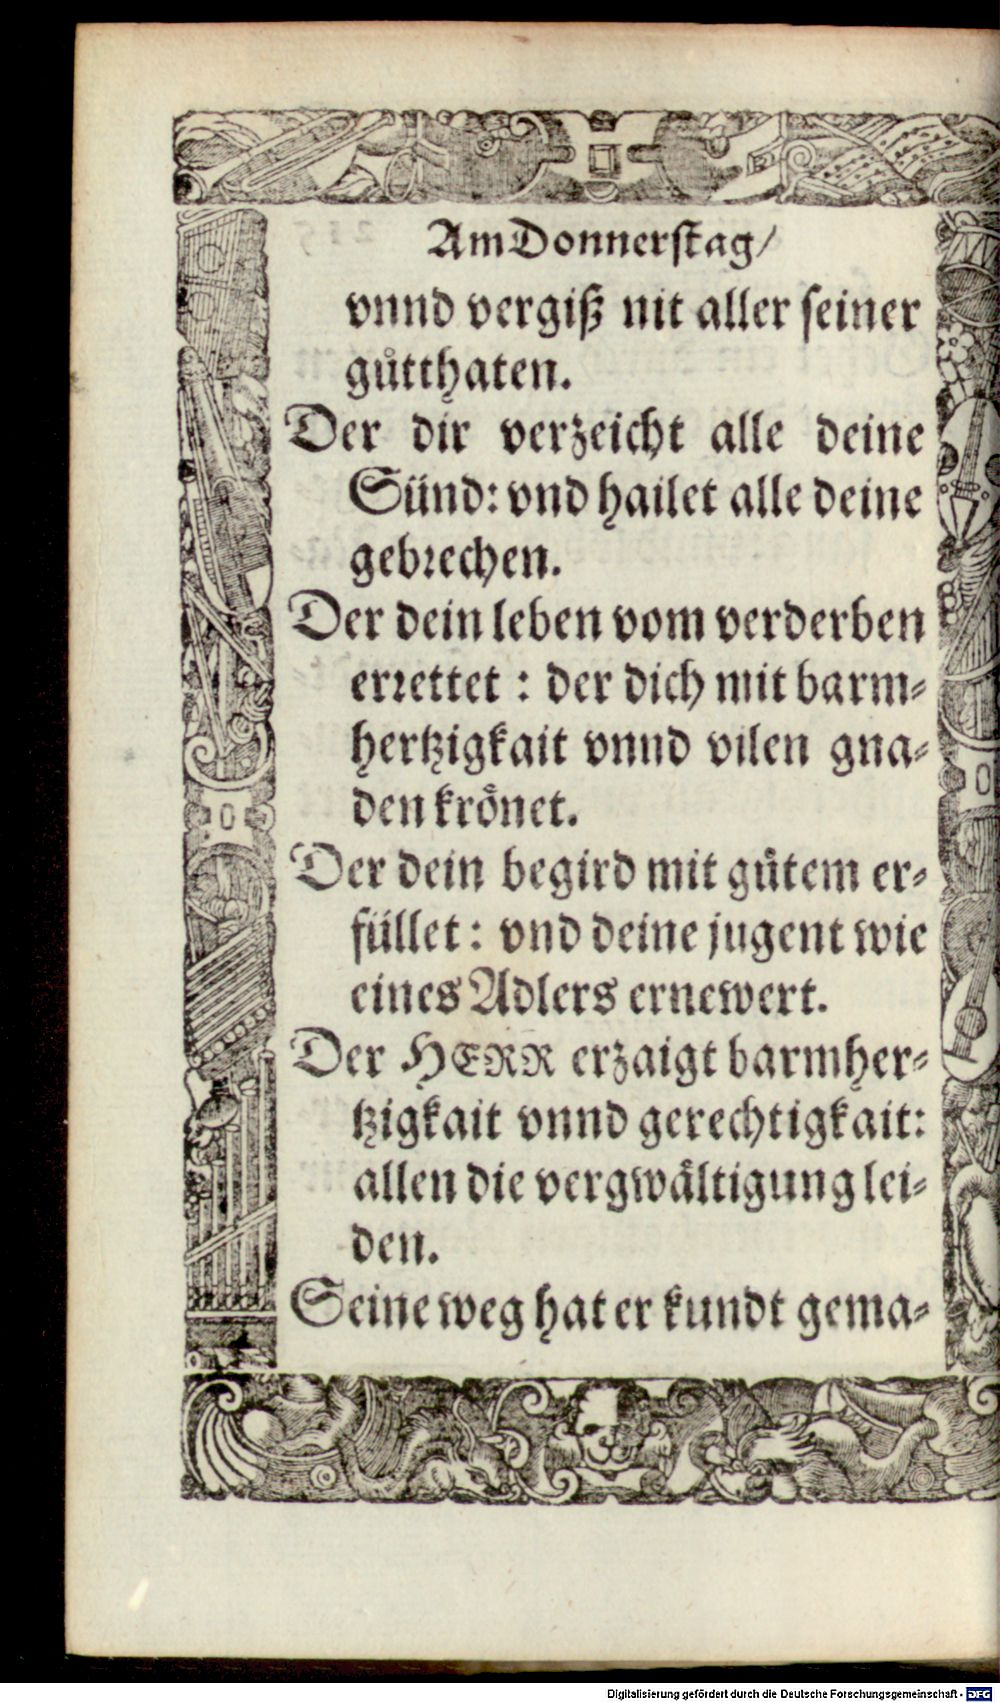 Am Donnerſtag/
vnnd vergiß nit aller ſeiner
gůtthaten.
Der dir verzeicht alle deine
Sünd: vnd hailet alle deine
gebꝛechen.
Der dein leben vom verderben
erꝛettet : der dich mit barm⸗
hertzigkait vnnd vilen gna⸗
den kroͤnet.
Der dein begird mit gůtem er⸗
füllet : vnd deine jugent wie
eines Adlers ernewert.
Der HERR erzaigt barmher⸗
tzigkait vnnd gerechtigkait:
allen die vergwaͤltigung lei⸗
den.
Seine weg hat er kundt gema⸗
Digitalisierung gefördert durch die Deutsche Forschungsgemeinschaft - DFG